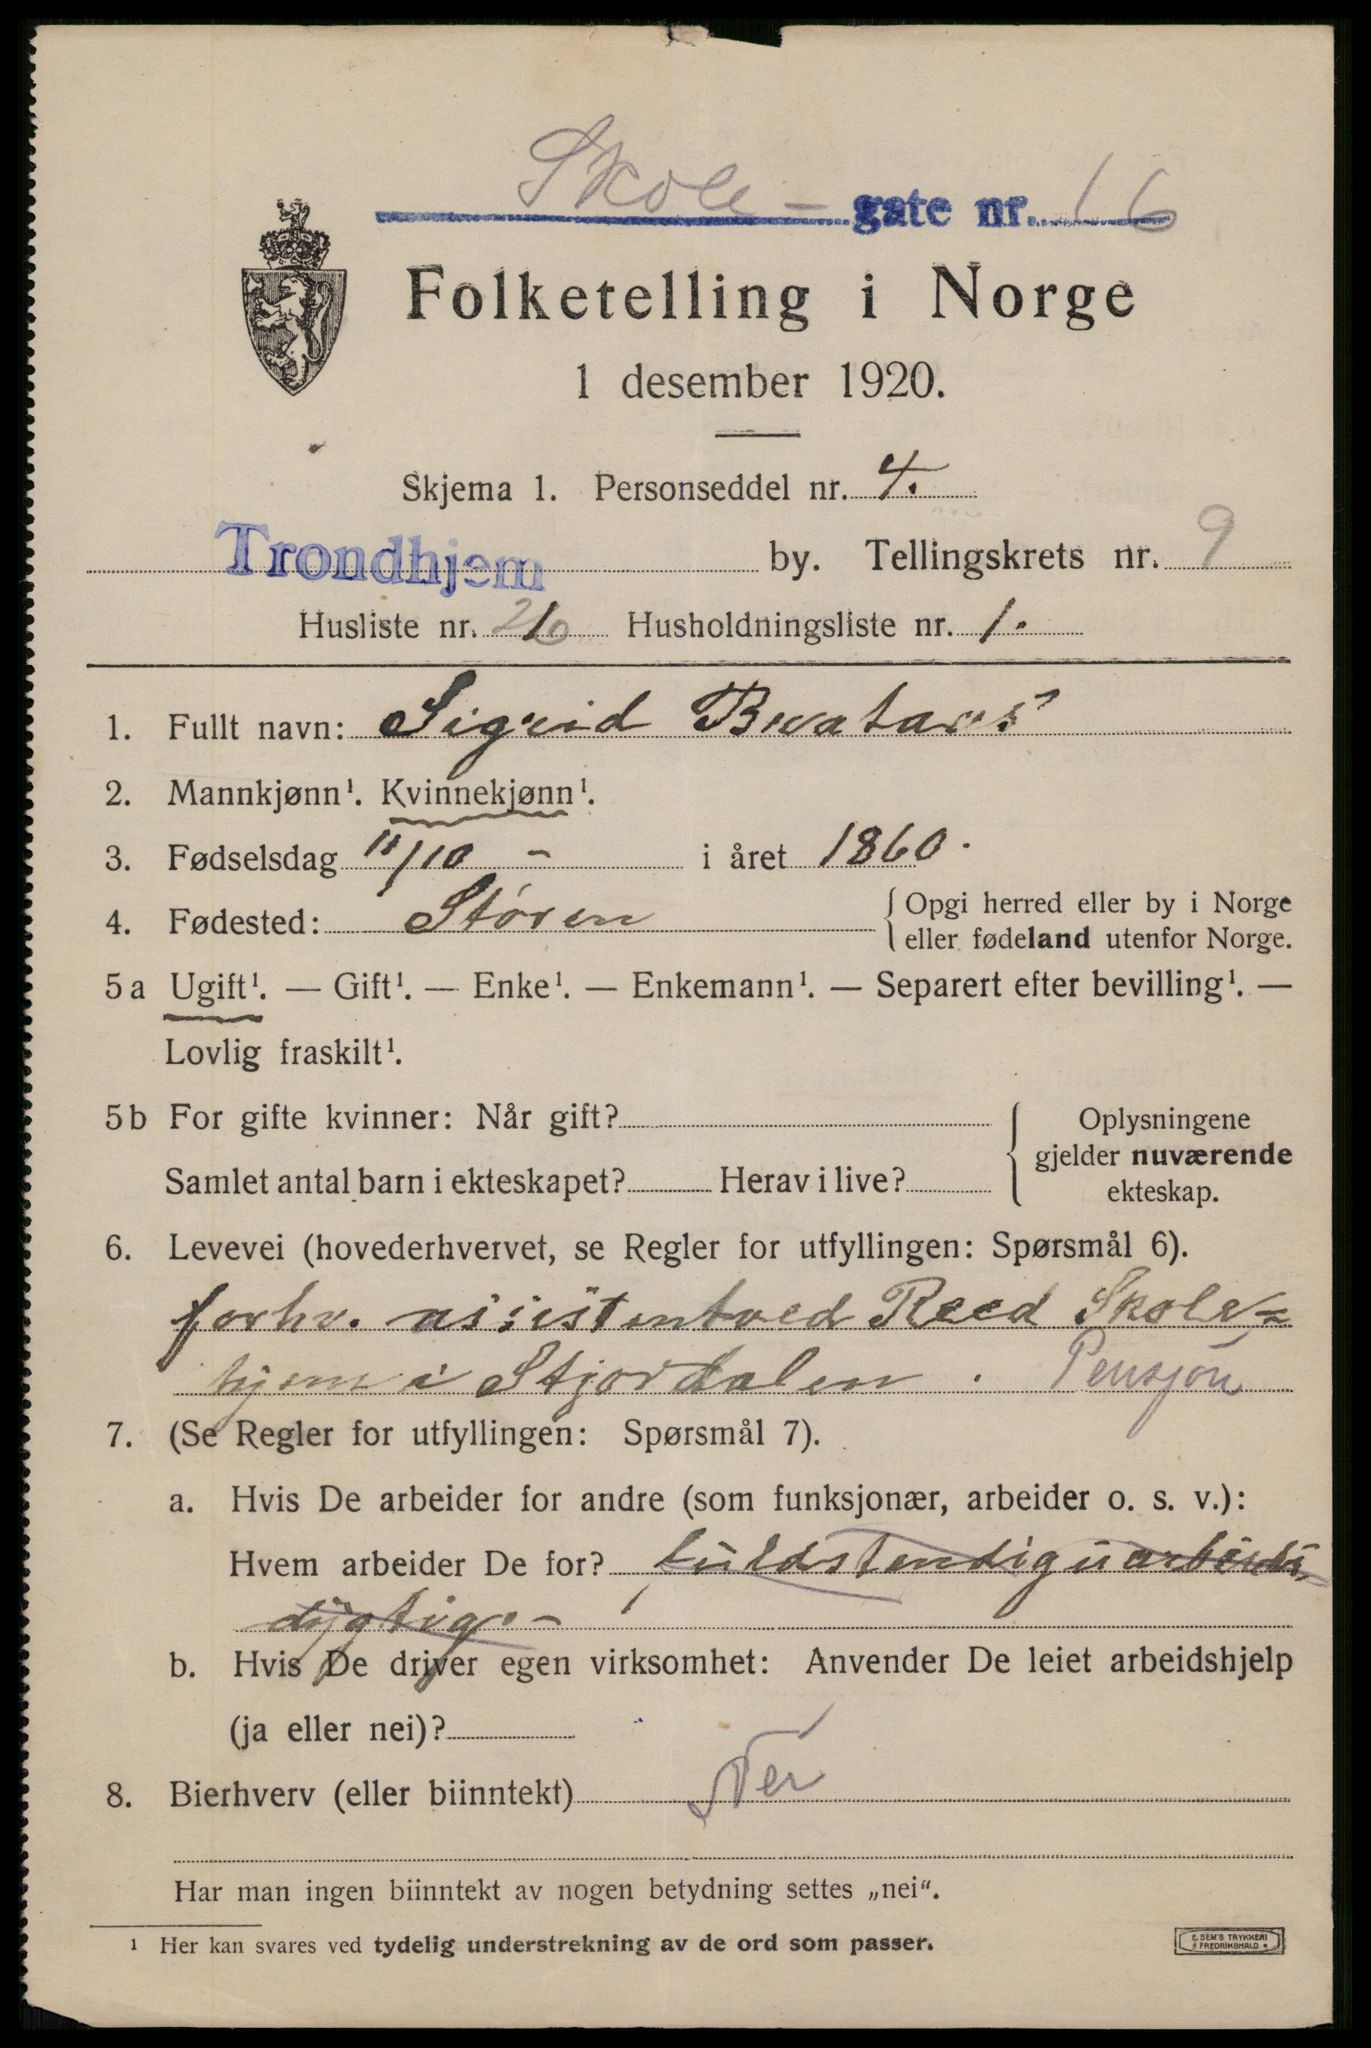 Skole- gate nr. 16
Folketelling i Norge
1 desember 1920.
Skjema 1. Personseddel nr. 4.
Trondhjem by. Tellingskrets nr. 9
Husliste nr. 26 Husholdningsliste nr. 1.
1. Fullt navn: Sigrid
2. Mannkjønn¹. Kvinnekjønn¹.
3. Fødselsdag 11/10 - i året 1860.
4. Fødested: Støren { Opgi herred eller by i Norge
eller fødeland utenfor Norge.
5a Ugift¹. — Gift¹. — Enke¹. — Enkemann¹. — Separert efter bevilling¹. —
Lovlig fraskilt¹.
5b For gifte kvinner: Når gift? { Oplysningene
gjelder nuværende
ekteskap.
Samlet antal barn i ekteskapet? Herav i live?
6. Levevei (hovederhvervet, se Regler for utfyllingen: Spørsmål 6).
forhv. assistent ved Skole-
hjem i Stjordalen. Pensjon
7. (Se Regler for utfyllingen: Spørsmål 7).
a. Hvis De arbeider for andre (som funksjonær, arbeider o. s. v.):
Hvem arbeider De for? fuldstendig uarbeids-
dygtig. -
b. Hvis De driver egen virksomhet: Anvender De leiet arbeidshjelp
(ja eller nei)?
8. Bierhverv (eller biinntekt) Nei
Har man ingen biinntekt av nogen betydning settes „nei“.
¹ Her kan svares ved tydelig understrekning av de ord som passer.
E. SEM'S TRYKKERI
FREDRIKSHALD